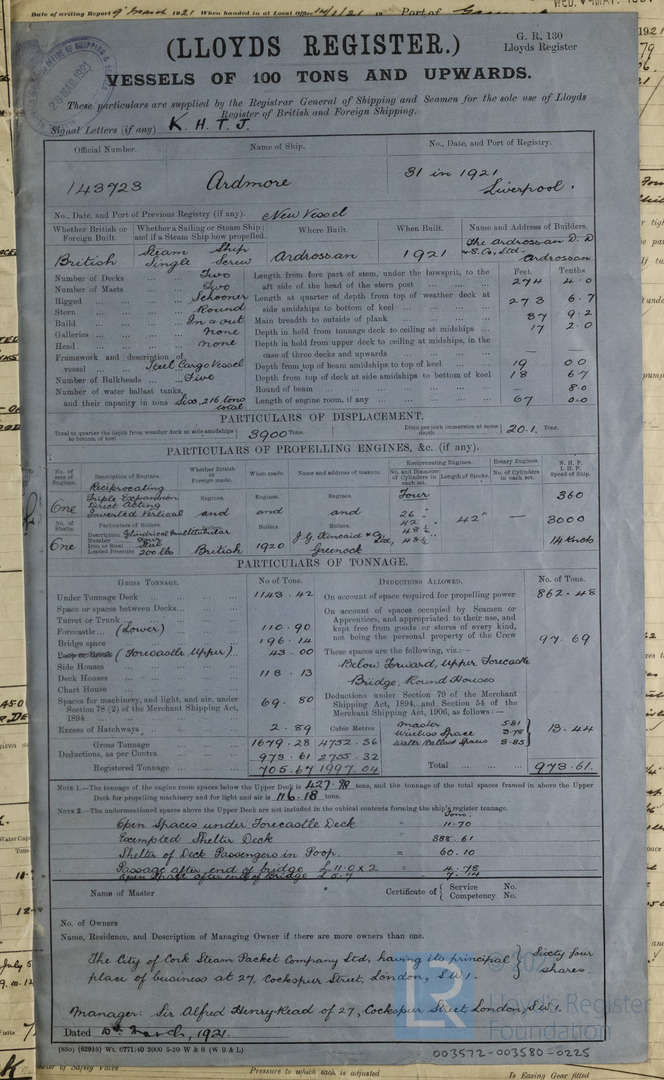 Date of writing Report 9th March 1921 When handed in at Local Office 19 Port of
(LLOYDS REGISTER.)
G. R. 130
Lloyds Register
VESSELS OF 100 TONS AND UPWARDS.
These particulars are supplied by the Registrar General of Shipping and Seamen for the sole use of Lloyds
Register of British and Foreign Shipping.
Signal Letters (if any) K. H. T. J.
Official Number. Name of Ship. No., Date, and Port of Registry.
143723 Ardmore 31 in 1921
Liverpool.
No., Date, and Port of Previous Registry (if any). New Vessel
Whether British or Foreign Built. Whether a Sailing or Steam Ship; and if a Steam Ship how propelled. Where Built. When Built. Name and Address of Builders.
British Steam Ship Single Screw Ardrossan 1921 The Ardrossan D. D & S. Co, Ltd. Ardrossan
Number of Decks Two
Number of Masts Two
Rigged Schooner
Stern Round
Build In & out
Galleries none
Head none
Framework and description of vessel Steel Cargo Vessel
Number of Bulkheads Five
Number of water ballast tanks, and their capacity in tons Six, 216 tons total
Feet. Tenths
Length from fore part of stem, under the bowsprit, to the aft side of the head of the stern post 274 4.0
Length at quarter of depth from top of weather deck at side amidships to bottom of keel 273 6.7
Main breadth to outside of plank 37 9.2
Depth in hold from tonnage deck to ceiling at midships 17 2.0
Depth in hold from upper deck to ceiling at midships, in the case of three decks and upwards —
Depth from top of beam amidships to top of keel 19 00
Depth from top of deck at side amidships to bottom of keel 18 6.7
Round of beam 8.0
Length of engine room, if any 67 0.0
PARTICULARS OF DISPLACEMENT.
Total to quarter the depth from weather deck at side amidships to bottom of keel 3900 Tons. Ditto per inch immersion at same depth 20.1. Tons.
PARTICULARS OF PROPELLING ENGINES, &c. (if any).
No. of sets of Engines. Description of Engines. Whether British or Foreign made. When made. Name and address of makers. Reciprocating Engines. Rotary Engines. N. H. P.
No. and Diameter of Cylinders in each set. Length of Stroke. No. of Cylinders in each set. I. H. P. Speed of Ship.
One Reciprocating Triple Expansion Direct Acting Inverted Vertical
Engines. Engines. Engines. Four 360
and and and 26" 42" 48½" 48½" 42" — 3000
No. of Shafts. Particulars of Boilers. Boilers Boilers
One Description Cylindrical Multitubular
Number
Iron or Steel Steel
Loaded Pressure 200 lbs
British 1920 J. G. Kincaid & Co Ltd, Greenock 14 Knots
PARTICULARS OF TONNAGE.
GROSS TONNAGE. No of Tons. DEDUCTIONS ALLOWED. No. of Tons.
Under Tonnage Deck 1143.42
Space or spaces between Decks
Turret or Trunk
Forecastle (Lower) 110.90
Bridge space 196.14
(Forecastle Upper) 43.00
Side Houses
Deck Houses 118.13
Chart House
Spaces for machinery, and light, and air, under Section 78 (2) of the Merchant Shipping Act, 1894 69.80
Excess of Hatchways 2.89 Cubic Metres
Gross Tonnage 1679.28 4752.36
Deductions, as per Contra 973.61 2755.32
Registered Tonnage 705.67 1997.04
On account of space required for propelling power 862.48
On account of spaces occupied by Seamen or Apprentices, and appropriated to their use, and kept free from goods or stores of every kind, not being the personal property of the Crew 97.69
These spaces are the following, viz.:—
Below Forward, Upper Forecastle
Bridge, Round Houses
Deductions under Section 79 of the Merchant Shipping Act, 1894, and Section 54 of the Merchant Shipping Act, 1906, as follows:—
Master 5.81
Wireless Space 3.78
Water Ballast Spaces 3.85
13.44
Total 973.61.
NOTE 1.—The tonnage of the engine room spaces below the Upper Deck is 427.98 tons, and the tonnage of the total spaces framed in above the Upper
Deck for propelling machinery and for light and air is 116.18 tons.
NOTE 2.—The undermentioned spaces above the Upper Deck are not included in the cubical contents forming the ship's register tonnage.
Tons.
Open Spaces under Forecastle Deck = 11.70
Exempted Shelter Deck 388.61
Shelter of Deck Passengers in Poop = 60.10
Passage after end of bridge £11.0 x 2 = 4.78
Open Space after end of Bridge
Name of Master Certificate of Service No.
Competency No.
No. of Owners
Name, Residence, and Description of Managing Owner if there are more owners than one.
The City of Cork Steam Packet Company Ltd, having its principal } Sixty four
place of business at 27, Cockspur Street, London, S.W.1. shares.
Manager: Sir Alfred Henry Read of 27, Cockspur Street London, S.W.1.
Dated 10th March, 1921.
(850) (62915) Wt. 6771/40 2000 5-20 W & S (W B & L)
© 20
LR
Lloyds Register
Foundation
003572-003580-0225
Pressure to which each is adjusted Is Easing Gear fitted